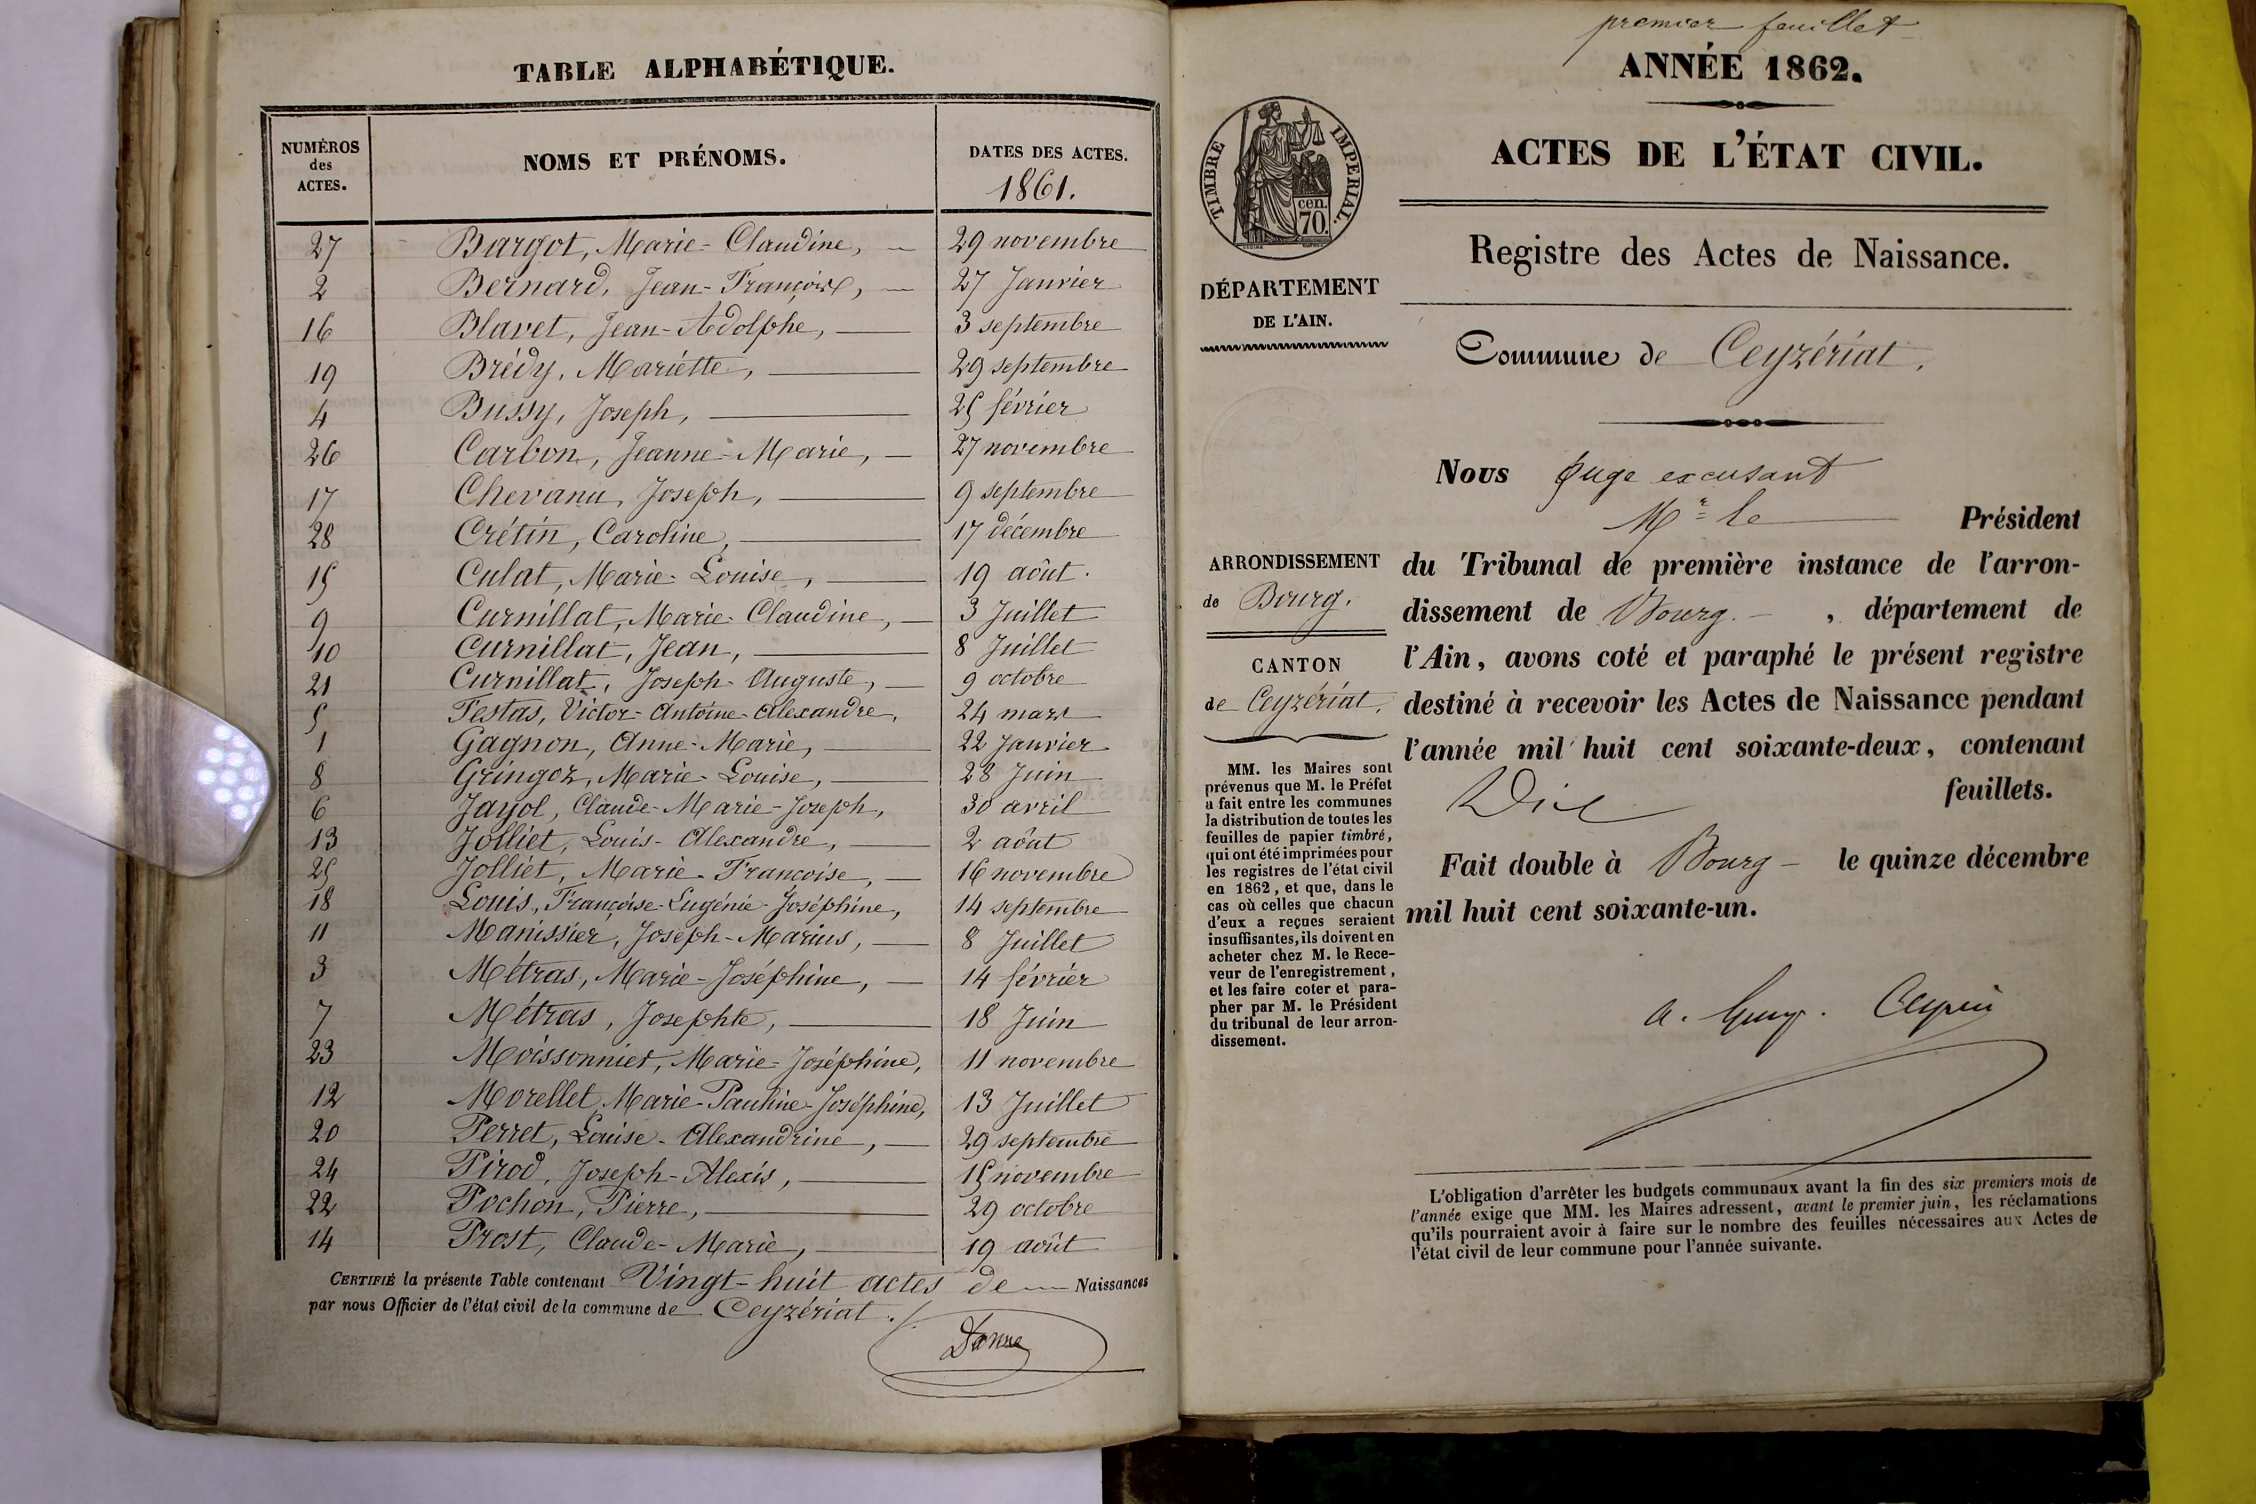 TABLE ALPHABÉTIQUE.
NUMÉROS des ACTES.
NOMS ET PRÉNOMS.
DATES DES ACTES.
1861.
27 Bargot, Marie-Claudine, 29 novembre
2 Bernard, Jean-François, 27 Janvier
16 Blavet, Jean-Adolphe, 3 septembre
19 Brédy, Mariétte, 29 septembre
4 Bussy, Joseph, 25 février
26 Carbon, Jeanne-Marie, 27 novembre
17 Chevanu, Joseph, 9 septembre
28 Crétin, Caroline, 17 décembre
15 Culat, Marie-Louise, 19 août.
9 Curnillat, Marie-Claudine, 3 Juillet
10 Curnillat, Jean, 8 Juillet
21 Curnillat, Joseph-Auguste, 9 octobre
5 Festas, Victor-Antoine-Alexandre, 24 mars
1 Gagnon, Anne-Marie, 22 Janvier
8 Gringoz, Marie-Louise, 28 Juin
6 Jayol, Claude-Marie-Joseph, 30 avril
13 Jolliet, Louis-Alexandre, 2 août
25 Jolliet, Marie-Françoise, 16 novembre
18 Louis, Françoise-Eugénie-Joséphine, 14 septembre
11 Manissier, Joseph-Marius, 8 Juillet
3 Métras, Marie-Joséphine, 14 février
7 Métras, Josephte, 18 Juin
23 Moissonnier, Marie-Joséphine, 11 novembre
12 Morellet, Marie-Pauline-Joséphine, 13 Juillet
20 Perret, Louise-Alexandrine, 29 septembre
24 Pirod, Joseph-Alexis, 15 novembre
22 Pochon, Pierre, 29 octobre
14 Prost, Claude-Marie, 19 août
CERTIFIÉ la présente Table contenant Vingt-huit actes de Naissances
par nous Officier de l'état civil de la commune de Ceyzériat.
premier feuillet
ANNÉE 1862.
TIMBRE IMPÉRIAL.
cen.
70.
ACTES DE L'ÉTAT CIVIL.
Registre des Actes de Naissance.
DÉPARTEMENT
DE L'AIN.
Commune de Ceyzériat.
Nous Juge excusant
Mr le Président
ARRONDISSEMENT
de Bourg.
du Tribunal de première instance de l'arron-
dissement de Bourg, département de
l'Ain, avons coté et paraphé le présent registre
destiné à recevoir les Actes de Naissance pendant
l'année mil huit cent soixante-deux, contenant
Dix feuillets.
CANTON
de Ceyzériat.
MM. les Maires sont
prévenus que M. le Préfet
a fait entre les communes
la distribution de toutes les
feuilles de papier timbré,
qui ont été imprimées pour
les registres de l'état civil
en 1862, et que, dans le
cas où celles que chacun
d'eux a reçues seraient
insuffisantes, ils doivent en
acheter chez M. le Rece-
veur de l'enregistrement,
et les faire coter et para-
pher par M. le Président
du tribunal de leur arron-
dissement.
Fait double à Bourg le quinze décembre
mil huit cent soixante-un.
L'obligation d'arrêter les budgets communaux avant la fin des six premiers mois de
l'année exige que MM. les Maires adressent, avant le premier juin, les réclamations
qu'ils pourraient avoir à faire sur le nombre des feuilles nécessaires aux Actes de
l'état civil de leur commune pour l'année suivante.